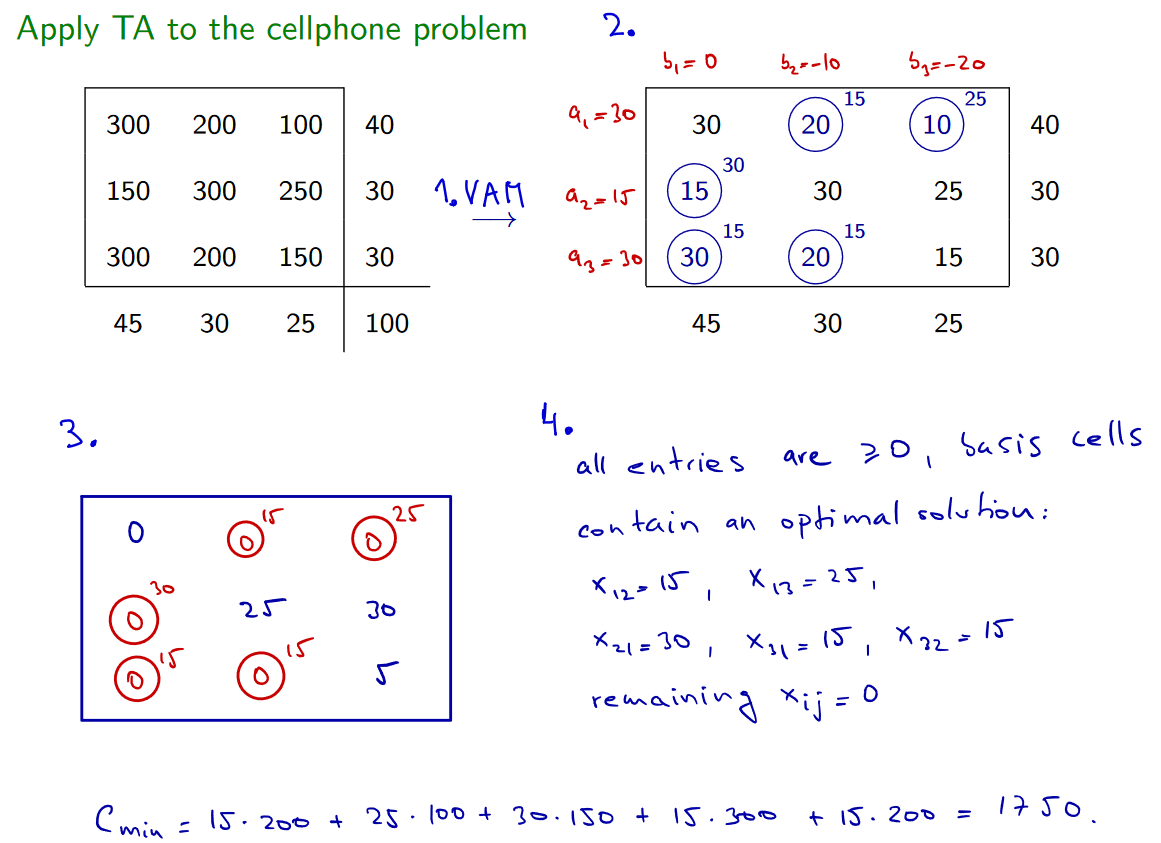 Apply TA to the cellphone problem
300 200 100 40
150 300 250 30
300 200 150 30
45 30 25 100
1. VAM →
2.
b₁ = 0 b₂ = -10 b₃ = -20
a₁ = 30 30 20 15 10 25 40
a₂ = 15 15 30 30 25 30
a₃ = 30 30 15 20 15 15 30
45 30 25
3.
0 0 15 0 25
0 30 25 30
0 15 0 15 5
4.
all entries are ⩾0, basis cells
contain an optimal solution:
x₁₂ = 15, x₁₃ = 25,
x₂₁ = 30, x₃₁ = 15, x₃₂ = 15
remaining xᵢⱼ = 0
Cmin = 15·200 + 25·100 + 30·150 + 15·300 + 15·200 = 1750.